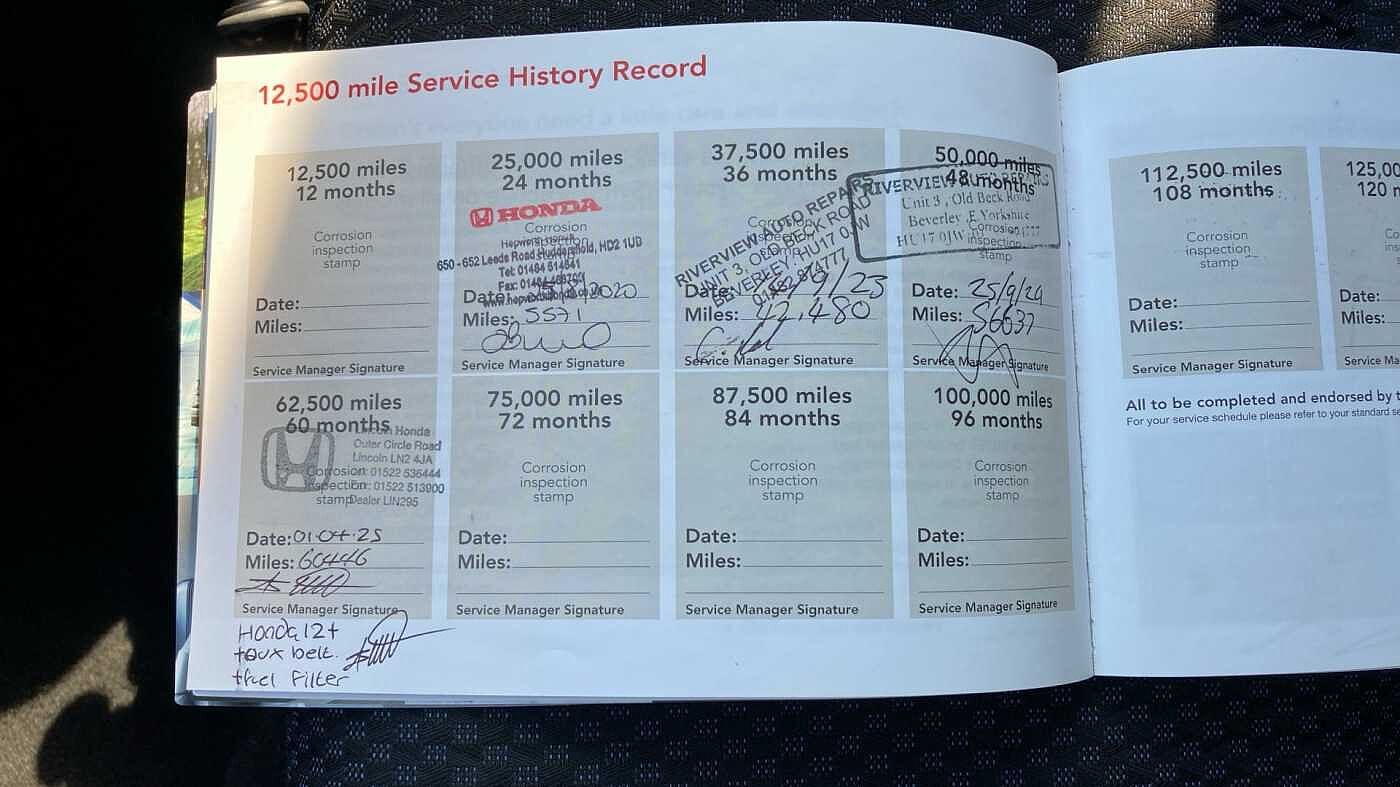 12,500 mile Service History Record
12,500 miles
12 months
Corrosion
inspection
stamp
Date:
Miles:
Service Manager Signature
25,000 miles
24 months
HONDA
Corrosion
650 - 652 Leeds Road Huddersfield, HD2 1UD
Tel: 01484 514541
Fax: 01484
Date: 2020
Miles: 5571
Service Manager Signature
37,500 miles
36 months
Corrosion
inspection
stamp
RIVERVIEW AUTO REPAIRS
UNIT 3, OLD BECK ROAD
BEVERLEY, HU17 0JW
01482 874777
Date: /9/23
Miles: 42,480
Service Manager Signature
50,000 miles
48 months
RIVERVIEW AUTO REPAIRS
Unit 3, Old Beck Road
Beverley, E Yorkshire
HU17 0JW
Corrosion
inspection
stamp
Date: 25/9/24
Miles: 56637
Service Manager Signature
62,500 miles
60 months
Lincoln Honda
Outer Circle Road
Lincoln LN2 4JA
Corrosion: 01522 536444
inspection: 01522 513900
stamp Dealer LIN295
Date: 01.04.25
Miles: 60446
Service Manager Signature
Honda 12+
+aux belt.
+fuel Filter
75,000 miles
72 months
Corrosion
inspection
stamp
Date:
Miles:
Service Manager Signature
87,500 miles
84 months
Corrosion
inspection
stamp
Date:
Miles:
Service Manager Signature
100,000 miles
96 months
Corrosion
inspection
stamp
Date:
Miles:
Service Manager Signature
112,500 miles
108 months
Corrosion
inspection
stamp
Date:
Miles:
Service Manager Signature
125,00
120 m
Co
ins
s
Date:
Miles:
Service Ma
All to be completed and endorsed by t
For your service schedule please refer to your standard se